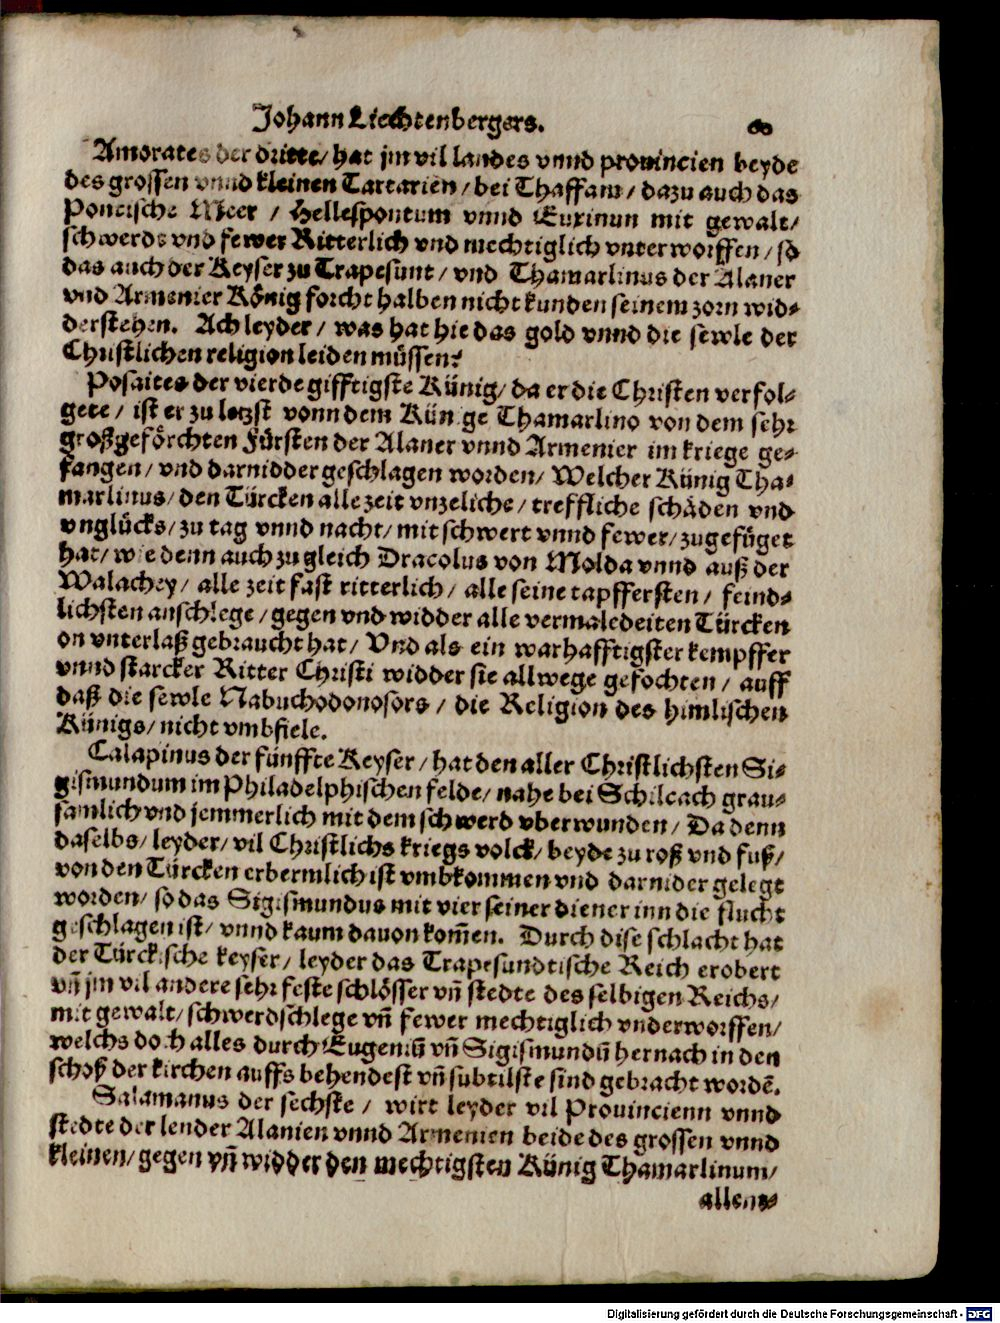 Johann Liechtenbergers. 60
Amorates der dritte/ hat jm vil landes vnnd prouincien beyde
des grossen vnnd kleinen Tartarien/ bei Thaffam/ dazu auch das
Pontische Meer / Hellespontum vnnd Euxinun mit gewalt/
schwerds vnd fewer Ritterlich vnd mechtiglich vnterworffen/ so
das auch der Keyser zu Trapesunt/ vnd Thamarlinus der Alaner
vnd Armenier König forcht halben nicht kunden seinem zorn wid⸗
derstehen. Ach leyder/ was hat hie das gold vnnd die sewle der
Christlichen religion leiden müssen?
Posaites der vierde gifftigste Künig/ da er die Christen verfol⸗
gete/ ist er zu letzst vonn dem Künige Thamarlino von dem sehr
großgeförchten Fürsten der Alaner vnnd Armenier im kriege ge⸗
fangen/ vnd darnidder geschlagen worden/ Welcher Künig Tha⸗
marlinus/ den Türcken alle zeit vnzeliche/ treffliche schäden vnd
vnglücks/ zu tag vnnd nacht/ mit schwert vnnd fewer/ zugefüget
hat/ wie denn auch zu gleich Dracolus von Molda vnnd auß der
Walachey/ alle zeit fast ritterlich/ alle seine tapffersten/ feind⸗
lichsten anschlege/ gegen vnd widder alle vermaledeiten Türcken
on vnterlaß gebraucht hat/ Vnd als ein warhafftigster kempffer
vnnd starcker Ritter Christi widder sie allwege gefochten/ auff
daß die sewle Nabuchodonosors/ die Religion des himlischen
Künigs/ nicht vmbfiele.
Calapinus der fünffte Keyser/ hat den aller Christlichsten Si⸗
gismundum im Philadelphischen felde/ nahe bei Schiltach grau⸗
samlich vnd jemmerlich mit dem schwerd vberwunden/ Da denn
daselbs/ leyder/ vil Christlichs kriegs volck/ beyde zu roß vnd fuß/
von den Türcken erbermlich ist vmbkommen vnd darnider gelegt
worden/ so das Sigismundus mit vier seiner diener inn die flucht
geschlagen ist/ vnnd kaum dauon kom̄en. Durch dise schlacht hat
der Türckische keyser/ leyder das Trapesundtische Reich erobert
vn̄ jm vil andere sehr feste schlösser vn̄ stedte des selbigen Reichs/
mit gewalt/ schwerdschlege vn̄ fewer mechtiglich vnderworffen/
welchs doch alles durch Eugeniū vn̄ Sigismundū hernach in den
schoß der kirchen auffs behendest vn̄ subtilste sind gebracht wordē.
Salamanus der sechste/ wirt leyder vil Prouincienn vnnd
stedte der lender Alanien vnnd Armenien beide des grossen vnnd
kleinen/ gegen vn̄ widder den mechtigsten Künig Thamarlinum/
allent⸗
Digitalisierung gefördert durch die Deutsche Forschungsgemeinschaft - DFG